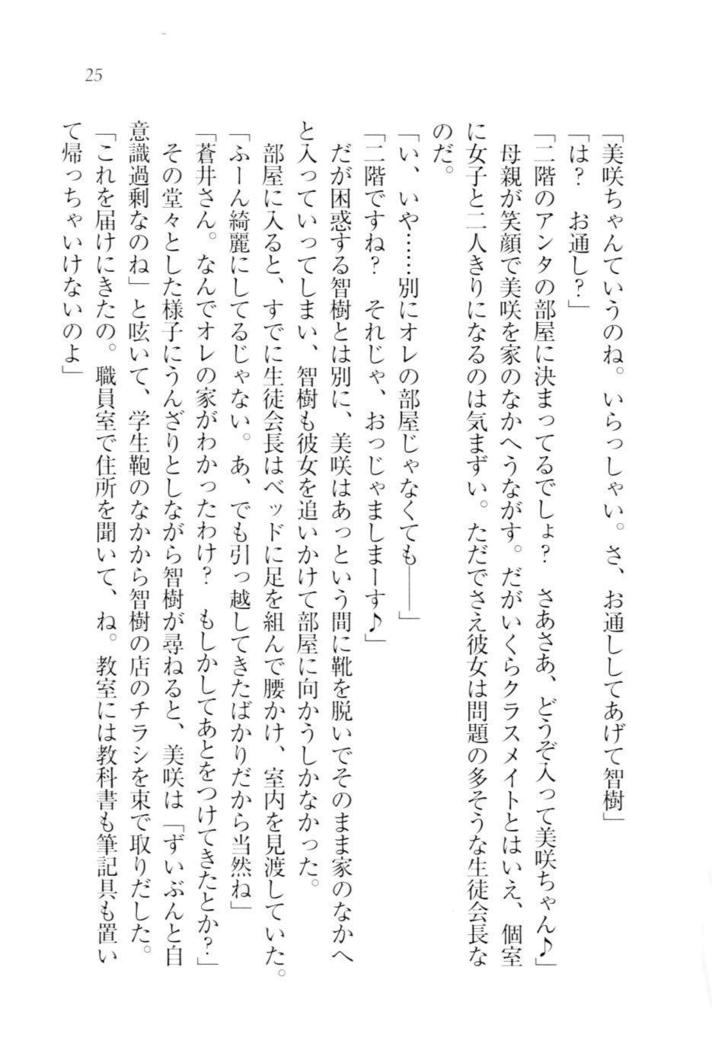 25
「美咲ちゃんていうのね。いらっしゃい。さ、お通ししてあげて智樹」
「は？　お通し？」
「二階のアンタの部屋に決まってるでしょ？　さあさあ、どうぞ入って美咲ちゃん♪」
　母親が笑顔で美咲を家のなかへうながす。だがいくらクラスメイトとはいえ、個室
に女子と二人きりになるのは気まずい。ただでさえ彼女は問題の多そうな生徒会長な
のだ。
「い、いや……別にオレの部屋じゃなくても――」
「二階ですね？　それじゃ、おっじゃましまーす♪」
　だが困惑する智樹とは別に、美咲はあっという間に靴を脱いでそのまま家のなかへ
と入っていってしまい、智樹も彼女を追いかけて部屋に向かうしかなかった。
　部屋に入ると、すでに生徒会長はベッドに足を組んで腰かけ、室内を見渡していた。
「ふーん綺麗にしてるじゃない。あ、でも引っ越してきたばかりだから当然ね」
「蒼井さん。なんでオレの家がわかったわけ？　もしかしてあとをつけてきたとか？」
　その堂々とした様子にうんざりとしながら智樹が尋ねると、美咲は「ずいぶんと自
意識過剰なのね」と呟いて、学生鞄のなかから智樹の店のチラシを束で取りだした。
「これを届けにきたの。職員室で住所を聞いて、ね。教室には教科書も筆記具も置い
て帰っちゃいけないのよ」